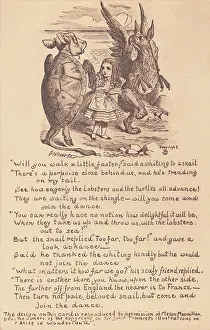 "Will you walk a little faster? said a whiting to a snail
"There's a porpoise close behind us, and he's treading
on my tail.
See how eagerly the lobsters and the turtles all advance!
They are waiting on the shingle — will you come and
join the dance.
"You can really have no notion how delightful it will be,
When they take us up and throw us, with the lobsters
out to sea!"
But the snail replied Too far, too far! and gave a
look askance
Said he thanked the whiting kindly but he would
not join the dance.
"What matters it how far we go? his scaly friend replied.
There is another shore, you know, upon the other side.
The further off from England the nearer is to France —
Then turn not pale, beloved snail, but come and
join the dance.
The design on this card is reproduced by permission of Messrs Macmillan
"Alice in Wonderland".